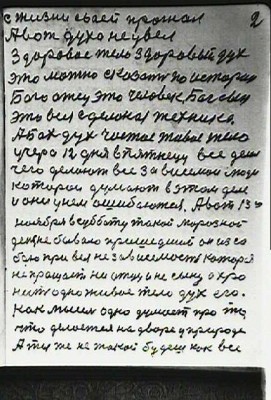 2
с жизни своей прогнал
А вот духа не увел
Здоровое тело здоровый дух
это можно сказать по истории
Бог отец это человек, Бог сын
это все сделала техника.
А Бог дух чистое живое тело
вчера 12 дня в пятницу все дела
чего делают все зависимой люди
которые думают в этом деле
и они у нем ошибаются. А вот 13
ноября в субботу такой морозной
день не бывало пришедший он из со
бою привел независимость которая
не прощает ни отцу а не сыну а хро
нить одно живое тело дух его.
Как мысль одно думает про то,
что делается на дворе у природе
А ты же не такой будеш как все